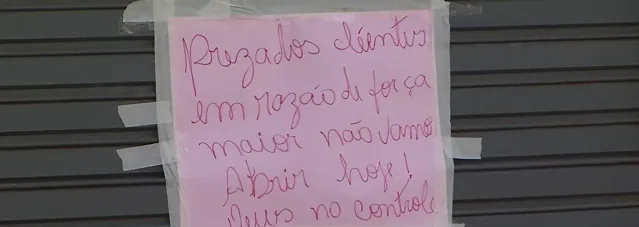 Prezados clientes
em razão de força
maior não vamo
Abrir hoje!
Deus no controle